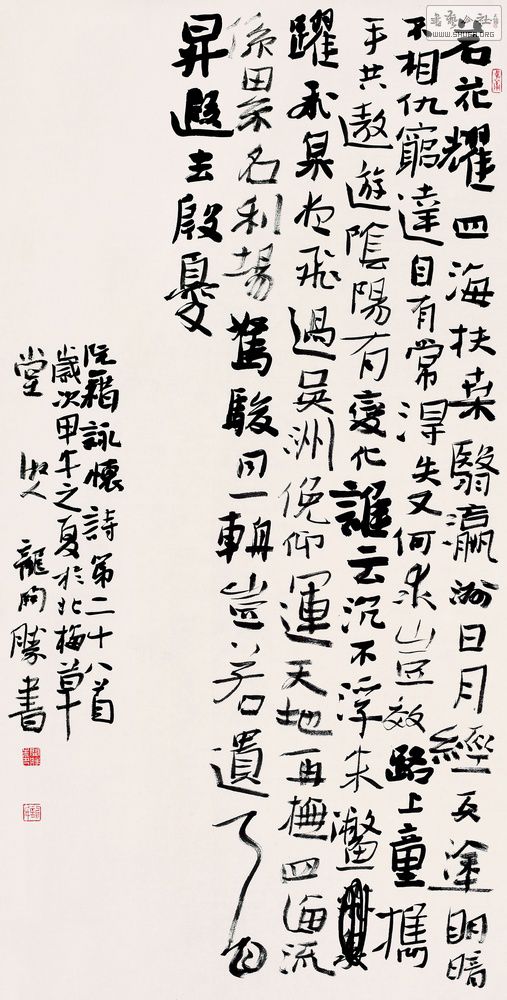 若花耀四海扶桑翳瀛洲日月經天塗明暗
不相仇窮達自有常得失又何求豈效路上童攜
手共遨遊陰陽有變化誰云沉不浮朱鱉
躍飛泉夜飛過吳洲俛仰運天地再撫四海流
係累名利場駑駿同一輈豈若遺耳目
昇遐去殷憂
阮籍詠懷詩第二十八首
歲次甲午之夏於北梅草
堂 湘人 龍開勝書